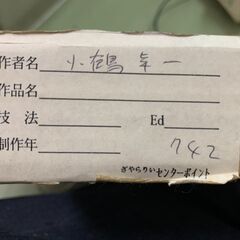 作者名 小鶴幸一
作品名
技法 Ed
制作年 742
ぎゃらりいセンターポイント